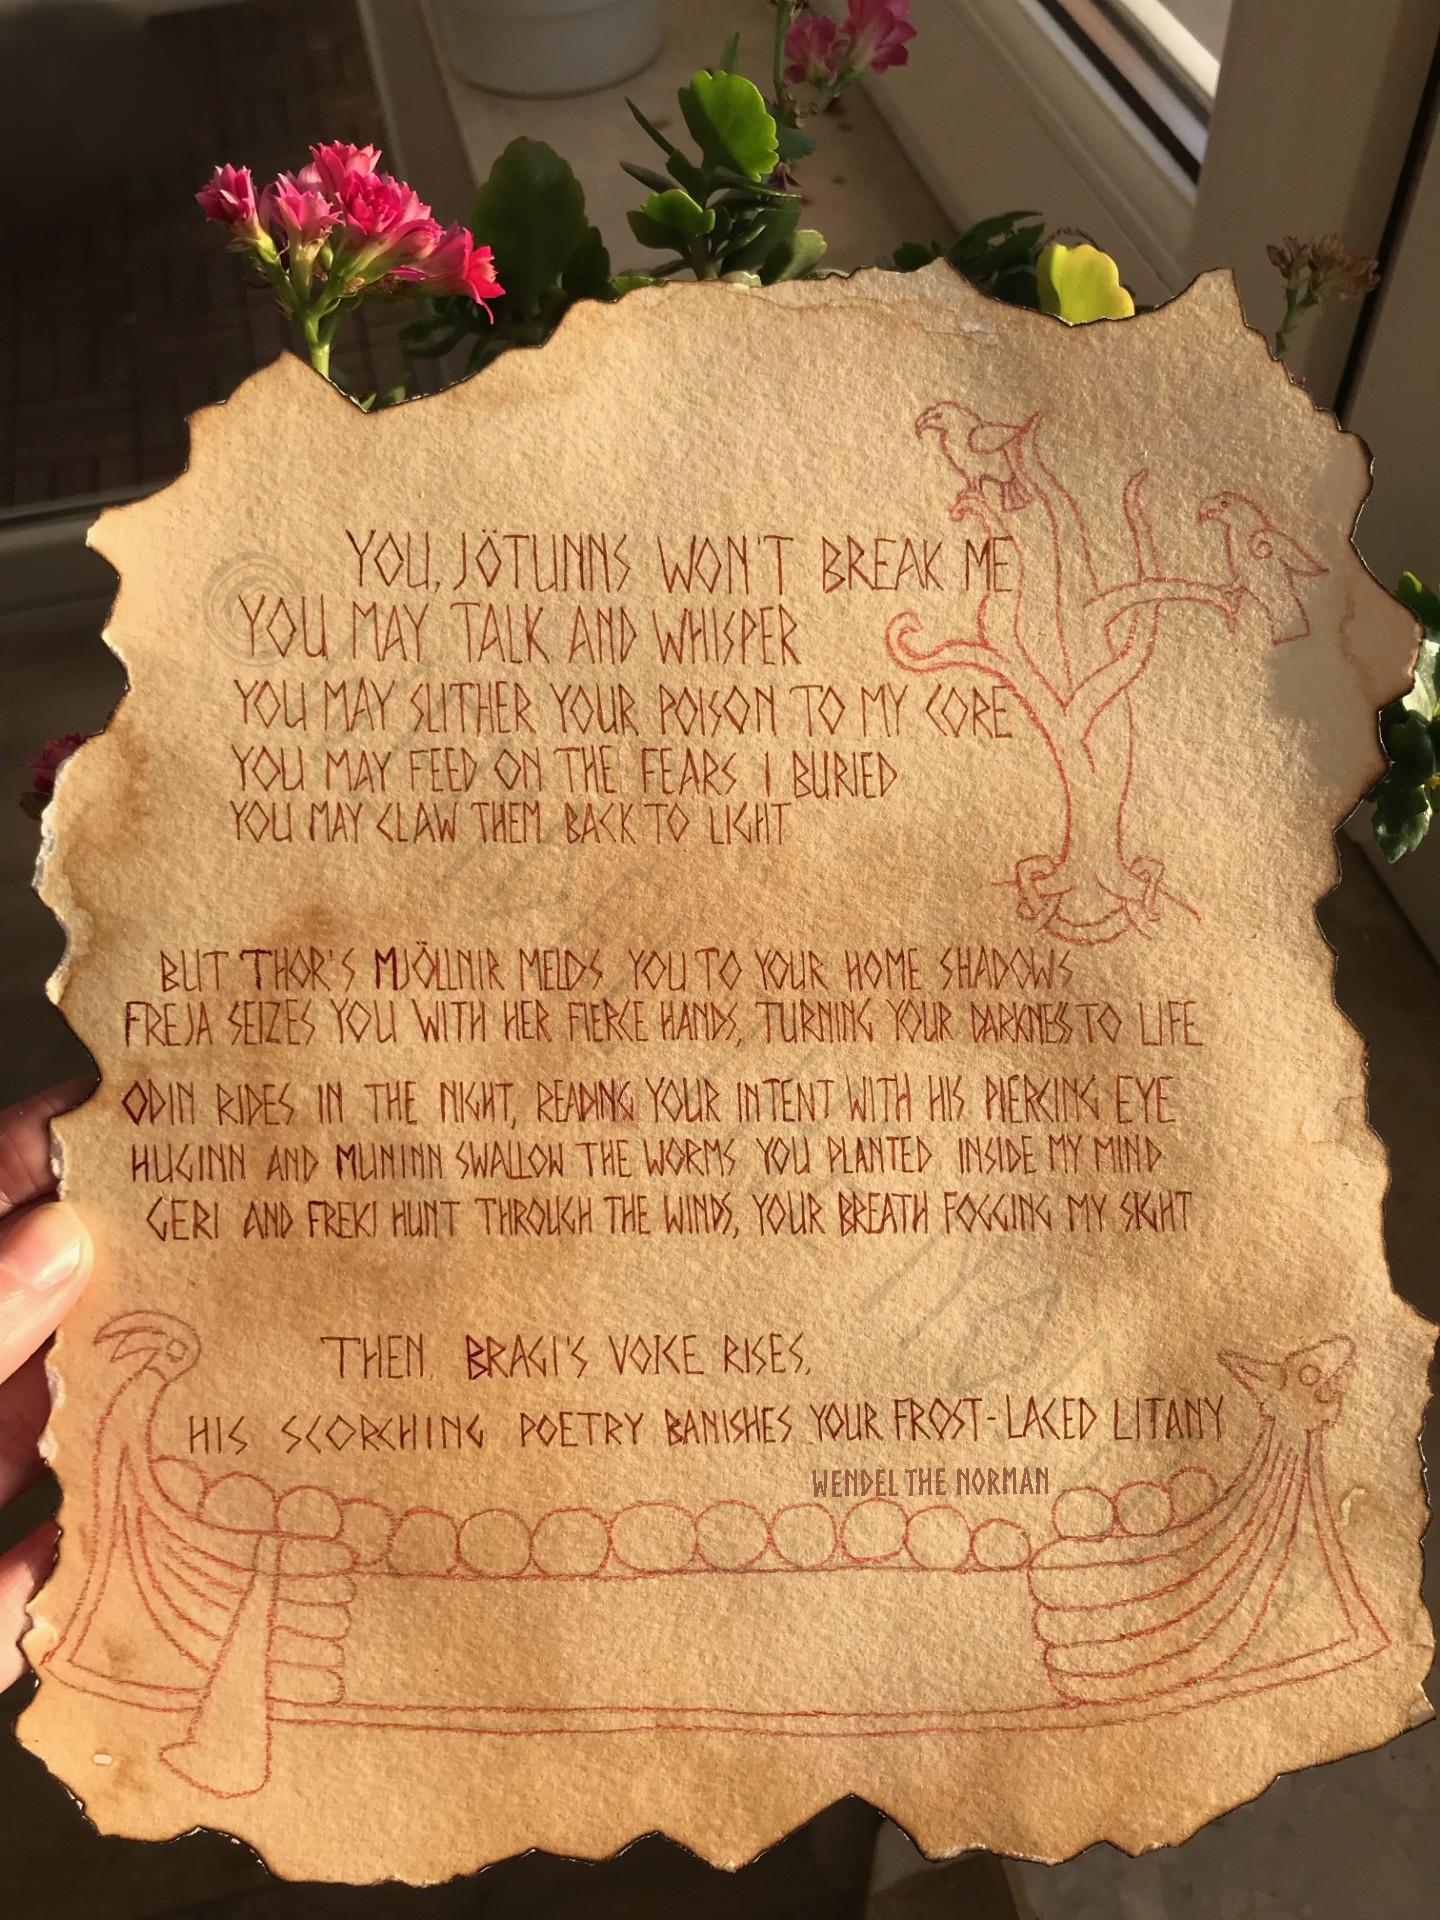 YOU, JÖTUNNS WON'T BREAK ME
YOU MAY TALK AND WHISPER
YOU MAY SLITHER YOUR POISON TO MY CORE
YOU MAY FEED ON THE FEARS I BURIED
YOU MAY CLAW THEM BACK TO LIGHT
BUT THOR'S MJÖLLNIR MELDS YOU TO YOUR HOME SHADOWS
FREJA SEIZES YOU WITH HER FIERCE HANDS, TURNING YOUR DARKNESS TO LIFE
ODIN RIDES IN THE NIGHT, READING YOUR INTENT WITH HIS PIERCING EYE
HUGINN AND MUNINN SWALLOW THE WORMS YOU PLANTED INSIDE MY MIND
GERI AND FREKI HUNT THROUGH THE WINDS, YOUR BREATH FOGGING MY SIGHT
THEN, BRAGI'S VOICE RISES,
HIS SCORCHING POETRY BANISHES YOUR FROST-LACED LITANY
WENDEL THE NORMAN